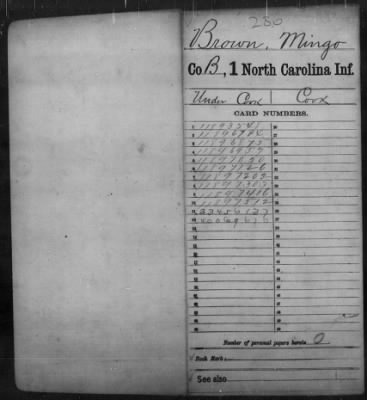 286
Brown, Mingo
Co. B, 1 North Carolina Inf.
Under Cook | Cook
CARD NUMBERS.
1 11893248 26
2 27
3 11896875 28
4 29
5 30
6 11897126 31
7 11897209 32
8 11897303 33
9 11897406 34
10 11897512 35
11 23456137 36
12 40069676 37
13 38
14 39
15 40
16 41
17 42
18 43
19 44
20 45
21 46
22 47
23 48
24 49
25 50
Number of personal papers herein 0
Book Mark:
See also